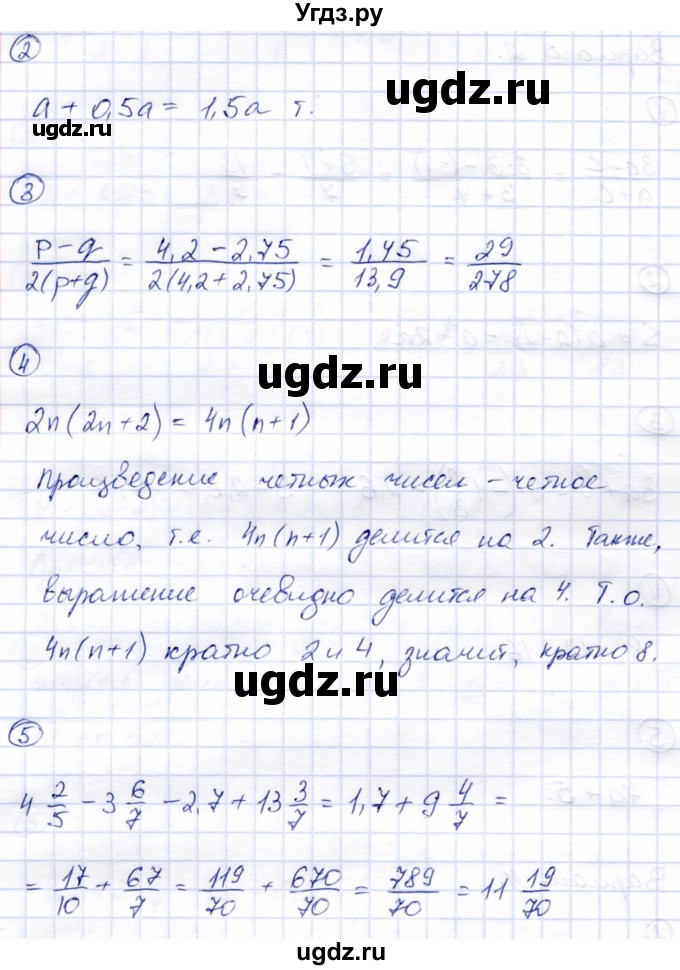 Угдз.ру
2
ugdz.ru
a + 0,5a = 1,5a т.
ugdz.ru
3
(p-q)/(2(p+q)) = (4,2-2,75)/(2(4,2+2,75)) = 1,45/13,9 = 29/278
4
ugdz.ru
2n(2n+2) = 4n(n+1)
Произведение четных чисел - четное
число, т.е. 4n(n+1) делится на 2. Также,
выражение очевидно делится на 4. Т.о.
4n(n+1) кратно 2 и 4, значит, кратно 8.
ugdz.ru
5
4 2/5 - 3 6/7 - 2,7 + 13 3/7 = 1,7 + 9 4/7 =
= 17/10 + 67/7 = 119/70 + 670/70 = 789/70 = 11 19/70
ugdz.ru